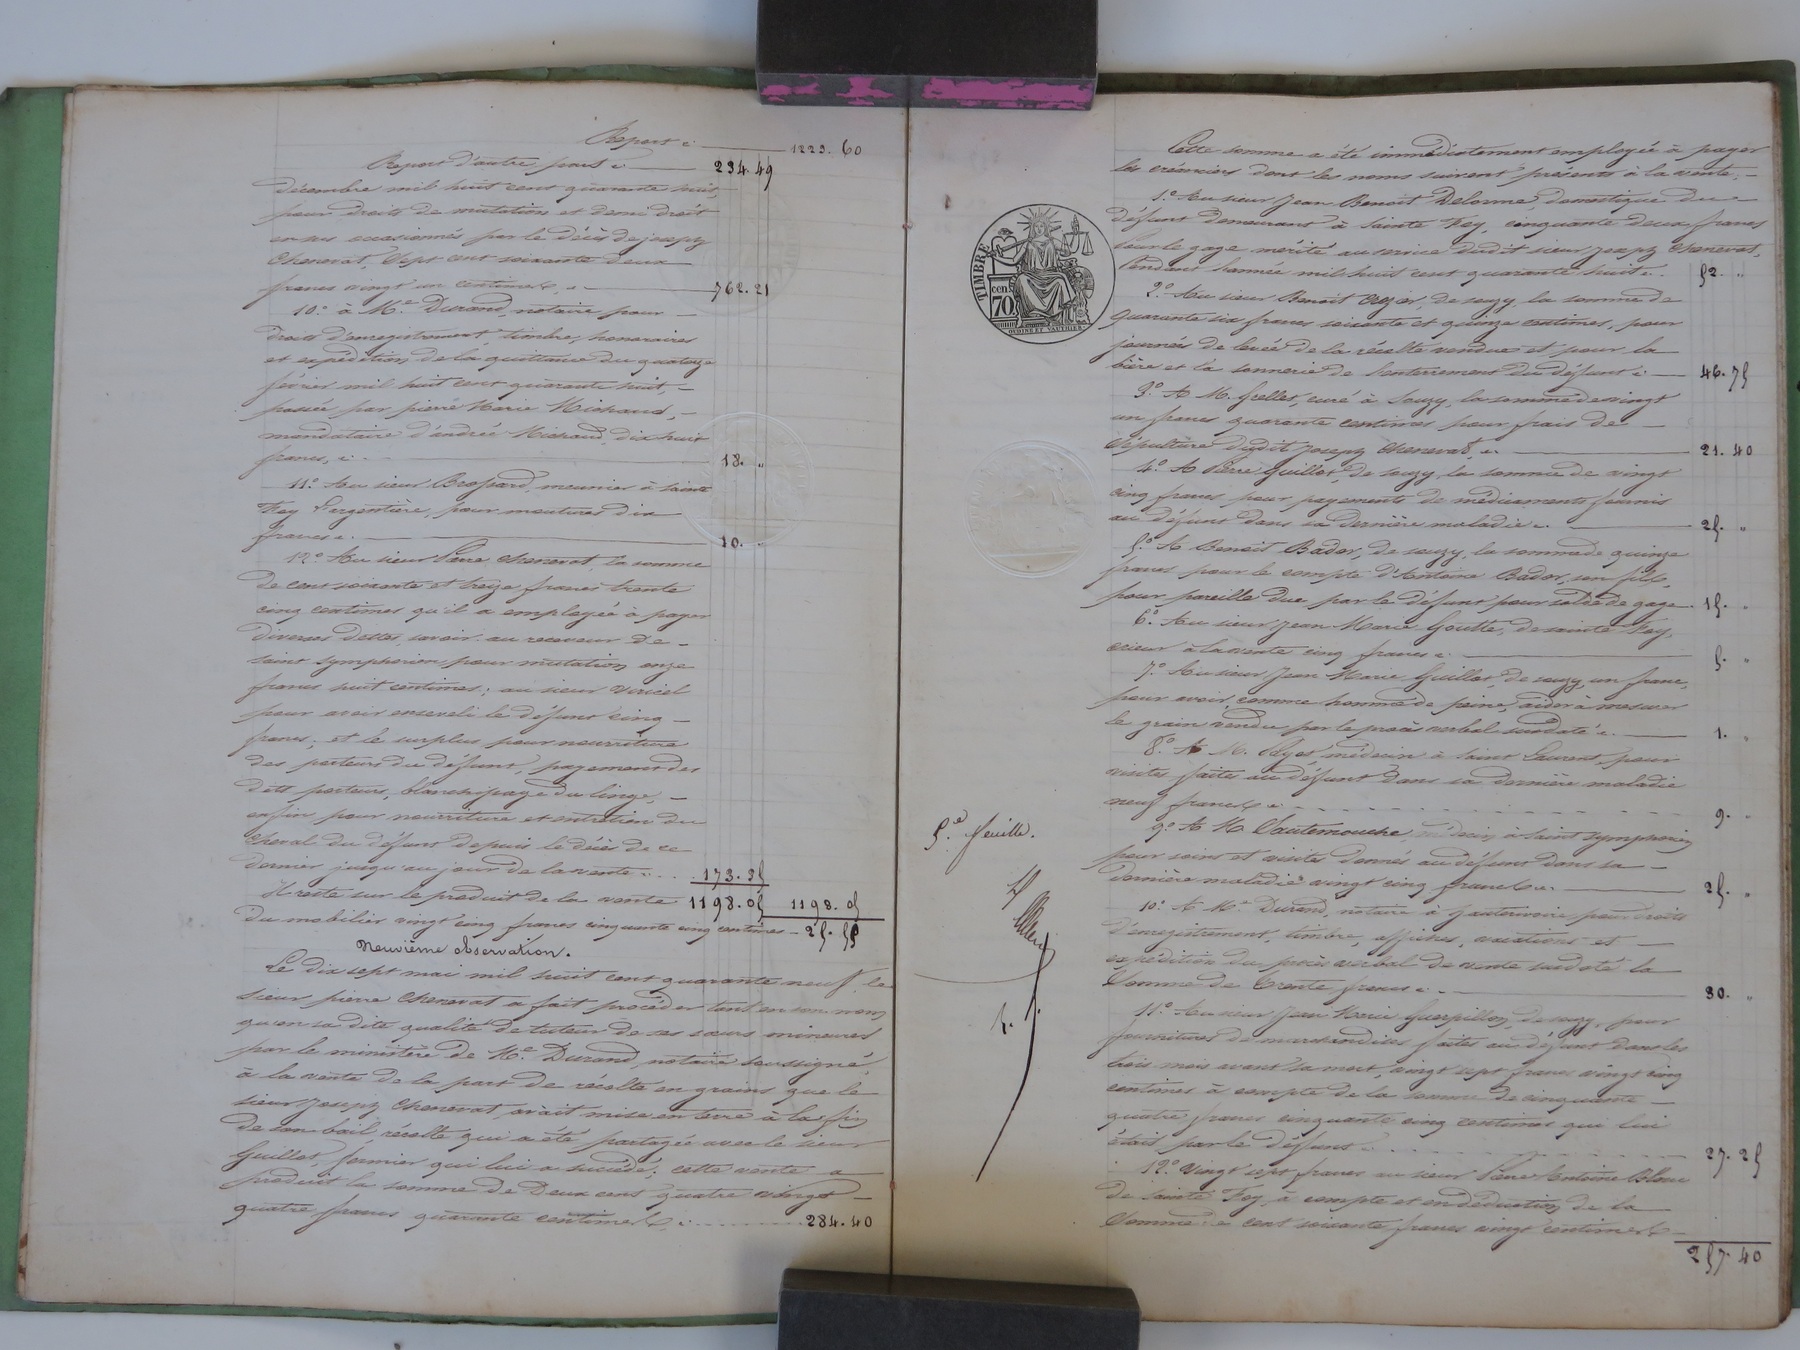 Report c. 1223. 60
Report d'autre part c. 234. 49
décembre mil huit cent quarante huit,
pour droits de mutation et demi droit
en sus occasionnés par le décès de joseph
Chenevat, Sept cent soixante deux
francs vingt un centimes, c. 762. 21
10.° à M.e Durand, notaire pour
droits d'enregistrement, timbre, honoraires
et expédition de la quittance du quatorze
février mil huit cent quarante huit,
passée par pierre Marie Michaud,
mandataire d'andré Michaud, dix huit
francs, c. 18. "
11.° Au sieur Brossard, meunier à Sainte
Foy l'argentière, pour moutures dix
francs c. 10. "
12.° Au sieur Pierre Chenevat, la somme
de cent soixante et treize francs trente
cinq centimes qu'il a employée à payer
diverses dettes, savoir: au receveur de
saint symphorien, pour mutation, onze
francs huit centimes; au sieur
pour avoir enseveli le défunt cinq
francs; et le surplus pour nourriture
des porteurs du défunt, payement des
dits porteurs, blanchissage du linge,
enfin pour nourriture et entretien du
cheval du défunt depuis le décès de ce
dernier jusqu'au jour de la vente c. 173. 35
Il reste sur le produit de la vente 1198. 05 1198. 05
du mobilier vingt cinq francs cinquante cinq centimes 25. 55
Neuvième observation.
Le dix sept mai mil huit cent quarante neuf, le
sieur pierre Chenevat a fait procéder tant en son nom
qu'en sa dite qualité de tuteur de ses sœurs mineures
par le ministère de M.e Durand, notaire soussigné,
à la vente de la part de récolte en grains que le
sieur Joseph Chenevat, avait mise en terre à la fin
de son bail, récolte qui a été partagée avec le sieur
Guillot, fermier qui lui a succédé; cette vente a
produit la somme de Deux cent quatre vingt
quatre francs quarante centimes c. 284. 40
Cette somme a été immédiatement employée à payer
les créanciers dont les noms suivent présents à la vente.
1.° Au sieur Jean Benoit Delorme, domestique du
défunt demeurant à Sainte Foy, cinquante deux francs
pour le gage mérité au service dudit sieur joseph Chenevat,
pendant l'année mil huit cent quarante huit c. 52. "
2.° Au sieur Benoit, de souzy, la somme de
quarante six francs soixante et quinze centimes, pour
journées de levée de la récolte vendue et pour la
bière et la sonnerie de l'enterrement du défunt c. 46. 75
3.° A M. Grellet, curé à Souzy, la somme de vingt
un francs quarante centimes pour frais de
sépulture dudit joseph Chenevat, c. 21. 40
4.° A Pierre Guillot, de souzy, la somme de vingt
cinq francs pour payements de médicaments fournis
au défunt dans sa dernière maladie c. 25. "
5.° A Benoit Bador, de souzy, la somme de quinze
francs pour le compte d'Antoine Bador, son fils,
pour pareille due par le défunt pour solde de gage 15. "
6.° Au sieur Jean Marie Goutte, de sainte Foy,
crieur à la vente cinq francs c. 5. "
7.° Au sieur Jean Marie Guillot, de souzy, un franc,
pour avoir, comme homme de peine, aidé à mesurer
le grain vendu par le procès verbal susdaté c. 1. "
8.° A M., médecin à Saint Laurent, pour
visites faites au défunt dans sa dernière maladie
neuf francs c. 9. "
9.° A M. Sautemouche, médecin à Saint Symphorien
pour soins et visites donnés au défunt dans sa
dernière maladie vingt cinq francs c. 25. "
10.° A M.e Durand, notaire à, pour droits
d'enregistrement, timbre, affiches, vacations et
expédition du procès verbal de vente susdaté la
somme de Trente francs c. 30. "
11.° Au sieur Jean Marie Guerpillon, de souzy, pour
fournitures de marchandises faites au défunt dans les
trois mois avant sa mort, vingt sept francs vingt cinq
centimes à compte de la somme de cinquante
quatre francs cinquante cinq centimes que lui
était par le défunt c. 27. 25
12.° Vingt sept francs au sieur Pierre Antoine Blanc
de Sainte Foy, à compte et en déduction de la
somme de cent soixante francs vingt centimes
257. 40
TIMBRE
70 cen.
5.e feuille.